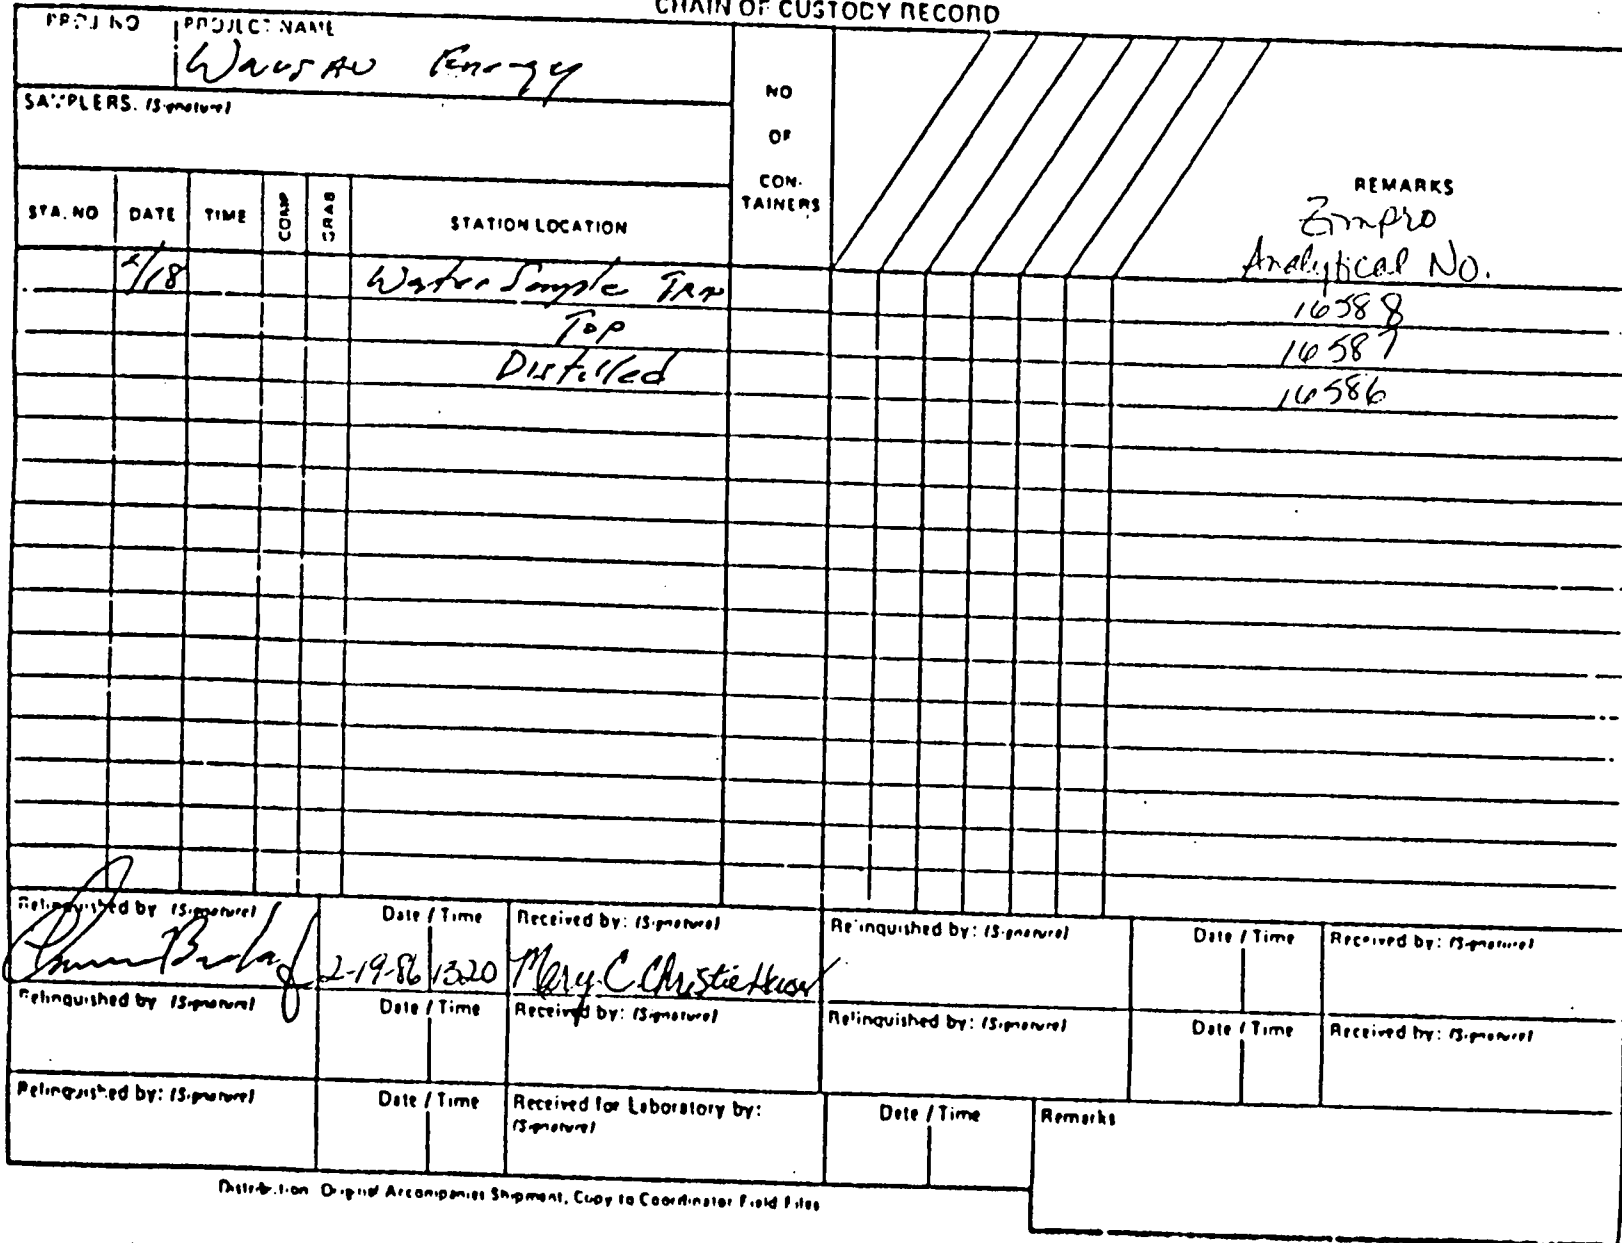 CHAIN OF CUSTODY RECORD
PROJ. NO PROJECT NAME
Wausau Energy
SAMPLERS: (Signature)
NO
OF
CON-
TAINERS
REMARKS
Zimpro
Analytical No.
STA. NO DATE TIME COMP GRAB STATION LOCATION
2/18 Water Sample 16588
Top 16587
Distilled 16586
Relinquished by (Signature) Date / Time Received by: (Signature) Relinquished by: (Signature) Date / Time Received by: (Signature)
2-19-86 1320 Mary C. Christie
Relinquished by (Signature) Date / Time Received by: (Signature) Relinquished by: (Signature) Date / Time Received by: (Signature)
Relinquished by: (Signature) Date / Time Received for Laboratory by: Date / Time Remarks
(Signature)
Distribution Original Accompanies Shipment, Copy to Coordinator Field Files